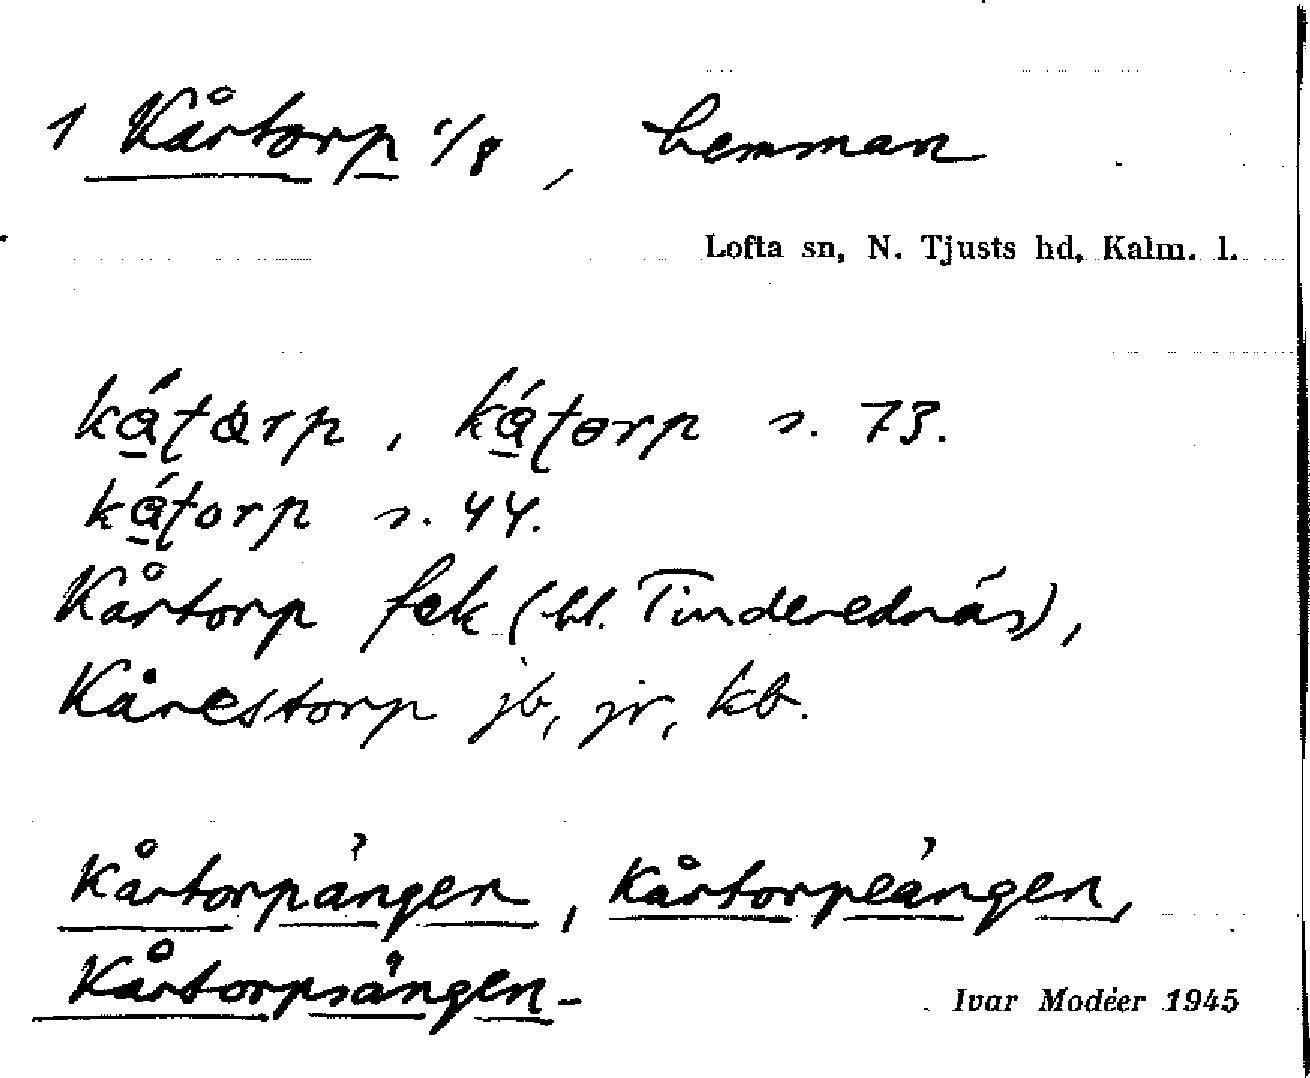 1 Kårtorp 1/8, hemman
Lofta sn, N. Tjusts hd, Kalm. l.
kǻʈarp, kǻʈorp s. 73.
kǻʈorp s. 44.
Kårtorp fek (bl. Tinderednäs),
Kårestorp jb, jr, kb.
Kårtorpängen, Kårtorpeängen,
Kårtorpsängen.
Ivar Modéer 1945